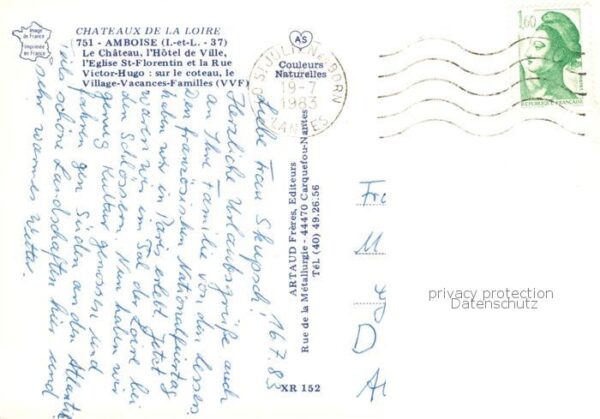 Image de France
Imprimée en France
CHATEAUX DE LA LOIRE
751 - AMBOISE (I.-et-L. - 37)
Le Château, l'Hôtel de Ville,
l'Eglise St-Florentin et la Rue
Victor-Hugo : sur le coteau, le
Village-Vacances-Familles (VVF)
AS
Couleurs
Naturelles
ST JULIEN BORN
19-7
1983
LANDES
1,60
REPUBLIQUE FRANÇAISE
16.7.83
Liebe Frau Skupsch!
Herzliche Urlaubsgrüße auch
an Ihre Familie von den
Den französischen Nationalfeiertag
haben wir in Paris erlebt. Jetzt
waren wir im Tal der Loire bei
den Schlössern. Nun haben wir
genug Kultur genossen und
fahren gen Süden an den Atlantic
viele schöne Landschaften hier und
sehr warmes Wetter.
ARTAUD Frères, Editeurs
Rue de la Métallurgie - 44470 Carquefou-Nantes
Tél. (40) 49.26.56
XR 152
Fr
M
D
privacy protection
Datenschutz